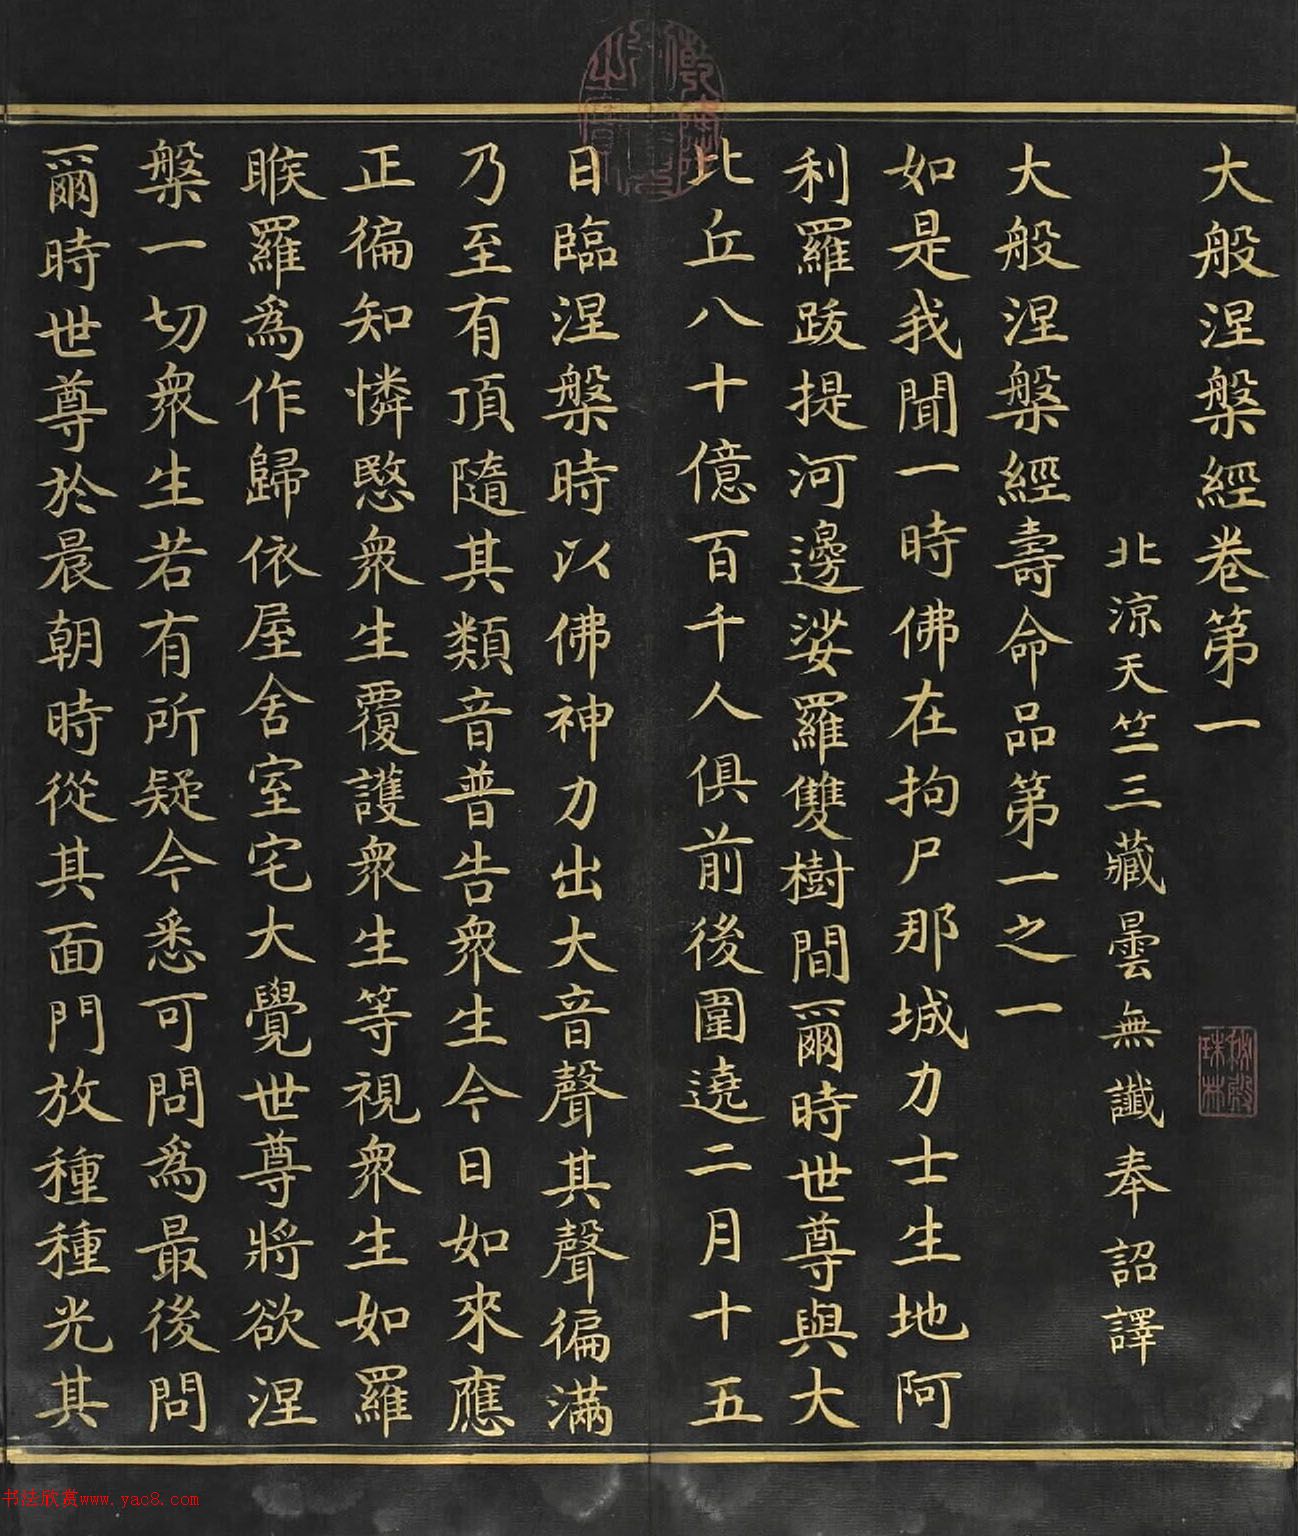 大般涅槃經卷第一
北涼天竺三藏曇無讖奉詔譯
大般涅槃經壽命品第一之一
如是我聞一時佛在拘尸那城力士生地阿
利羅跋提河邊娑羅雙樹間爾時世尊與大
比丘八十億百千人俱前後圍遶二月十五
日臨涅槃時以佛神力出大音聲其聲徧滿
乃至有頂隨其類音普告衆生今日如來應
正徧知憐愍衆生覆護衆生等視衆生如羅
睺羅爲作歸依屋舍室宅大覺世尊將欲涅
槃一切衆生若有所疑今悉可問爲最後問
爾時世尊於晨朝時從其面門放種種光其
乾隆御覽之寶
秘殿珠林
书法欣赏www.yac8.com